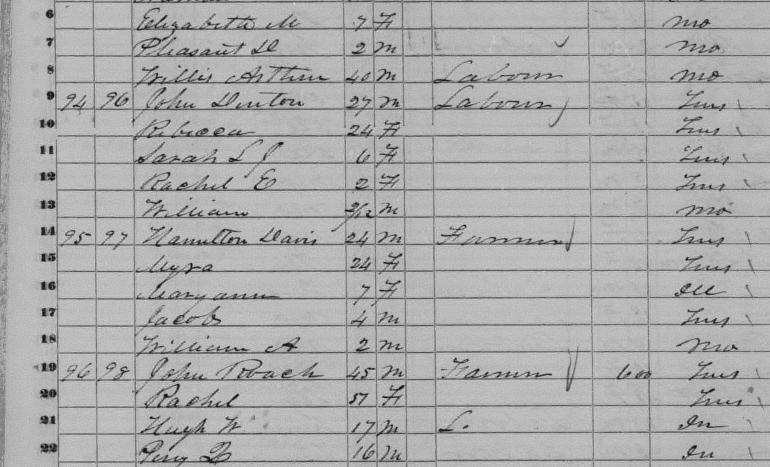 6 Elizabeth M 7 F Mo
7 Pleasant D 2 M Mo
8 Willis Arthur 40 M Labour Mo
9 94 96 John Denton 27 M Labour Tens
10 Rebecca 24 F Tens
11 Sarah L J 6 F Tens
12 Rachel E 2 F Tens
13 William 2/12 M Mo
14 95 97 Hamilton Davis 24 M Farmer Tens
15 Myra 24 F Tens
16 Maryann 7 F Ill
17 Jacob 4 M Tens
18 William A 2 M Mo
19 96 98 John Roach 45 M Farmer 600 Tens
20 Rachel 51 F Tens
21 Hugh W 17 M L. In
22 16 M In